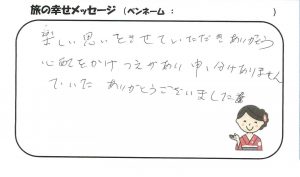 旅の幸せメッセージ (ペンネーム: )
楽しい思いをさせていただきありがとう
心配をかけ つえがあい 申し分けありません
でいた ありがとうございました